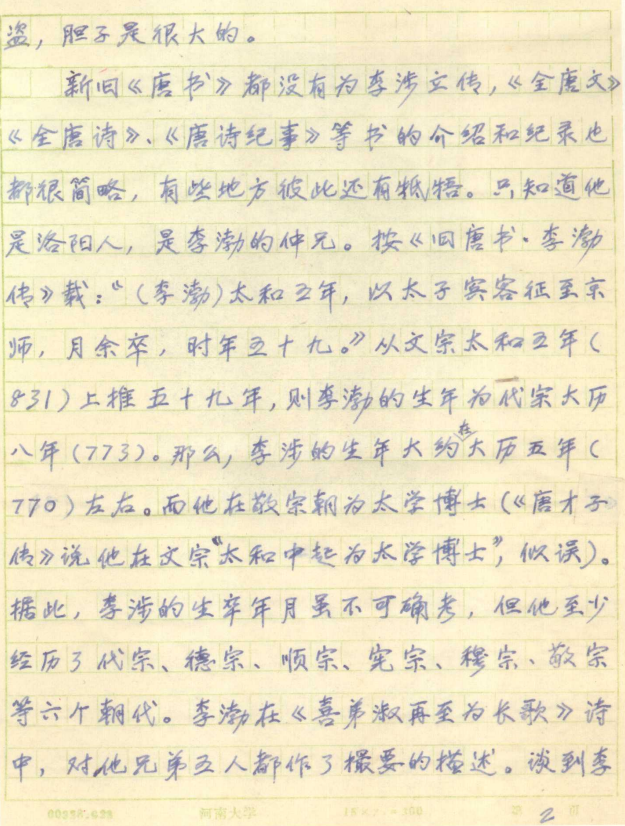 盗，胆子是很大的。
新旧《唐书》都没有为李涉立传，《全唐文》
《全唐诗》、《唐诗纪事》等书的介绍和纪录也
都很简略，有些地方彼此还有牴牾。只知道他
是洛阳人，是李渤的仲兄。按《旧唐书·李渤
传》载：“（李渤）太和五年，以太子宾客征至京
师，月余卒，时年五十九。”从文宗太和五年（
831）上推五十九年，则李渤的生年为代宗大历
八年（773）。那么，李涉的生年大约在大历五年（
770）左右。而他在敬宗朝为太学博士（《唐才子
传》说他在文宗“太和中起为太学博士”，似误）。
据此，李涉的生卒年月虽不可确考，但他至少
经历了代宗、德宗、顺宗、宪宗、穆宗、敬宗
等六个朝代。李渤在《喜弟淑再至为长歌》诗
中，对他兄弟五人都作了撮要的描述。谈到李
河南大学
第 2 页